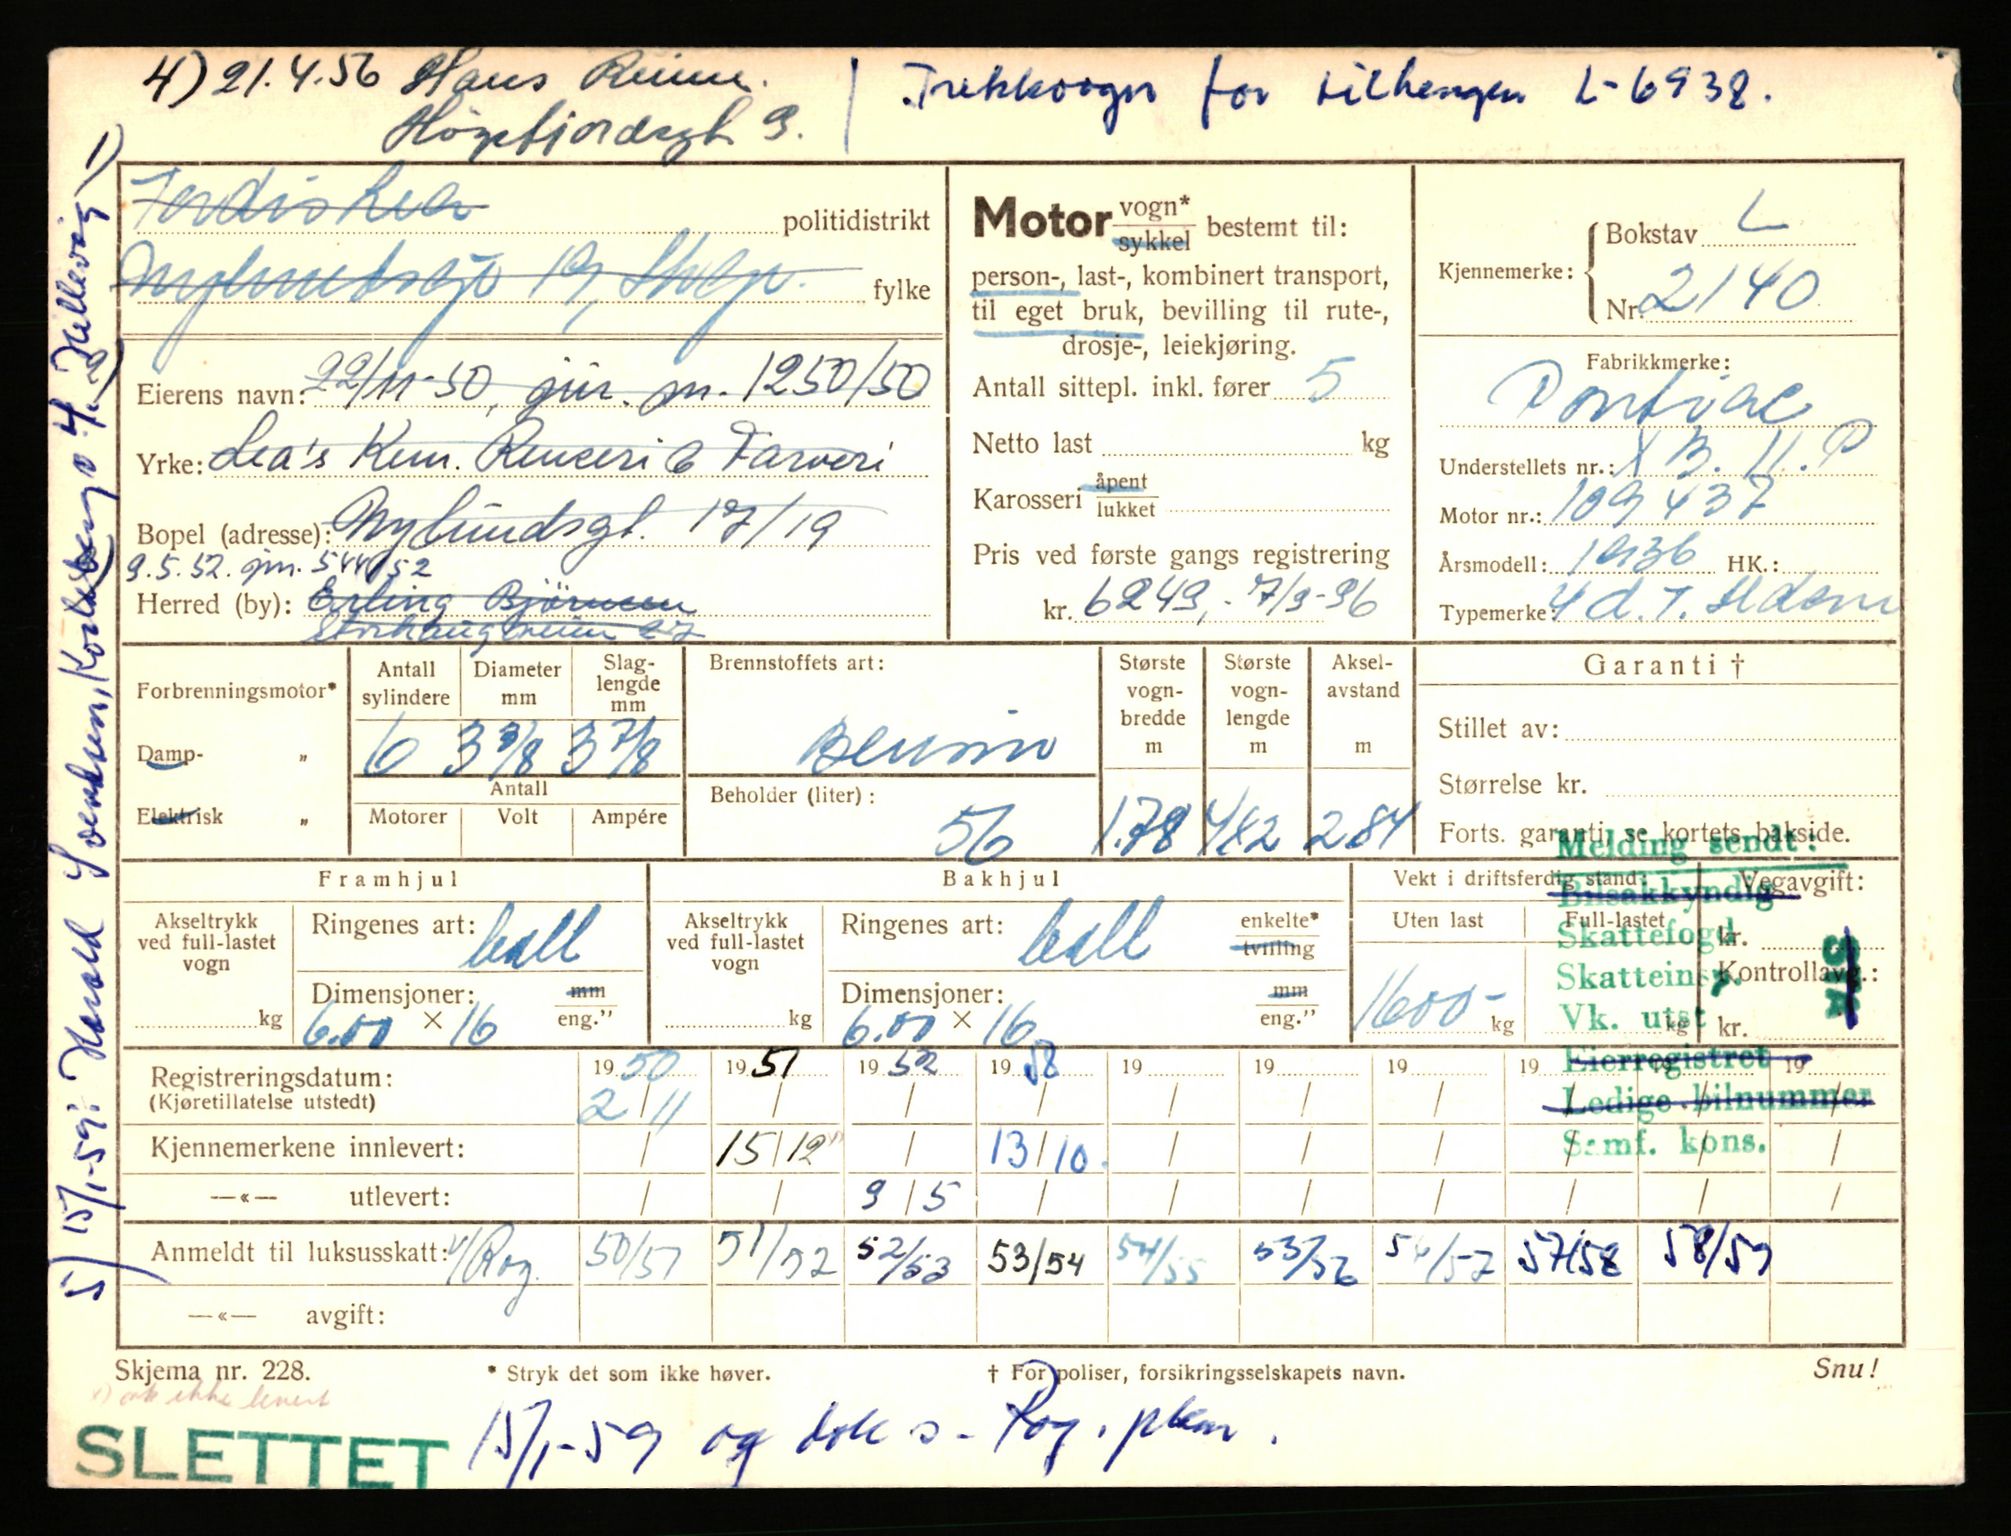 4) 21.4.56 Hans Reime.
Høgsfjordsgt 9.
Trekkvogn for tilhengen L-6938.
politidistrikt
Nylundsgt 19, Stvgr.
fylke
Eierens navn: 22/11-50, gjn. jn. 1250/50
Yrke: Lea's Kem. Renseri & Farveri
Bopel (adresse): Nylundsgt. 17/19
9.5.52. gjn. 544/52
Herred (by): Erling Bjørnsen
Storhaugveien 27
Motor vogn*
sykkel
bestemt til:
person-, last-, kombinert transport,
til eget bruk, bevilling til rute-,
drosje-, leiekjøring.
Antall sittepl. inkl. fører 5
Netto last kg
Karosseri åpent
lukket
Pris ved første gangs registrering
kr. 6249,- 7/9-36
Kjennemerke:
Bokstav L
Nr. 2140
Fabrikkmerke:
Pontiac
Understellets nr.:
Motor nr.: 109437
Årsmodell: 1936 HK.:
Typemerke: 4 d. T. Sedan
Forbrenningsmotor*
Damp- „
Elektrisk „
Antall sylindere
Diameter mm
Slag-lengde mm
6 3 3/8 3 7/8
Antall
Motorer Volt Ampére
Brennstoffets art:
Bensin
Beholder (liter):
56
Største vogn-bredde m
Største vogn-lengde m
Aksel-avstand m
1.78 4.82 284
Garanti †
Stillet av:
Størrelse kr.
Forts. garanti, se kortets bakside.
Framhjul
Akseltrykk ved full-lastet vogn
kg
Ringenes art: ball
Dimensjoner: mm
eng."
6.00 × 16
Bakhjul
Akseltrykk ved full-lastet vogn
kg
Ringenes art: ball
enkelte*
tvilling
Dimensjoner: mm
eng."
6.00 × 16
Vekt i driftsferdig stand:
Uten last Full-lastet
1600- kg kg
Vegavgift:
kr.
Kontrollavg.:
kr.
Melding sendt:
Bilsakkyndig
Skattefogd
Skatteinsp.
Vk. utst
Eierregistret
Ledige bilnummer
Samf. kons.
Registreringsdatum: 1950 1951 1952 1958 19 19 19 19 19 19
(Kjøretillatelse utstedt) 2/11 / / / / / / / / /
Kjennemerkene innlevert: / 15/12 / 13/10. / / / / / /
—«— utlevert: / / 9/5 / / / / / / /
Anmeldt til luksusskatt: 50/51 51/52 52/53 53/54 54/55 55/56 56/57 57/58 58/59
—«— avgift:
Skjema nr. 228.
* Stryk det som ikke høver.
† For poliser, forsikringsselskapets navn.
Snu!
SLETTET
15/1-59 og dok s-
5) 15/1-59: Harald Svendsen,